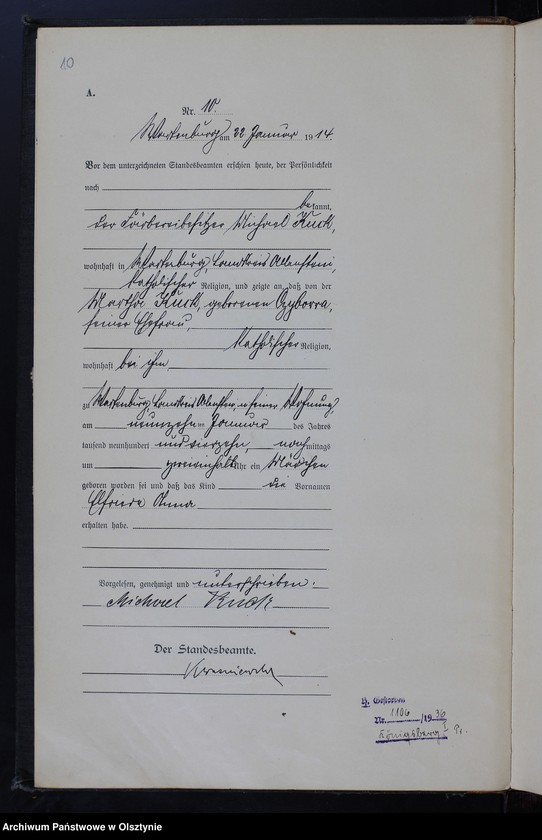 10
A.
Nr. 10.
Wartenburg am 22 Januar 1914.
Vor dem unterzeichneten Standesbeamten erschien heute, der Persönlichkeit
nach
bekannt,
der Färbereibesitzer Michael Kuck,
wohnhaft in Wartenburg, Landkreis Allenstein,
katholischer Religion, und zeigte an, daß von der
Martha Kuck, geborenen
seiner Ehefrau,
katholischer Religion,
wohnhaft bei ihm
zu Wartenburg, Landkreis Allenstein, in seiner Wohnung,
am neunzehnten Januar des Jahres
tausend neunhundert und vierzehn, nachmittags
um Uhr ein Mädchen
geboren worden sei und daß das Kind die Vornamen
Elfriede Anna
erhalten habe.
Vorgelesen, genehmigt und unterschrieben:
Michael Kuck
Der Standesbeamte.
Gestorben
Nr. 1106 /1936
Königsberg Pr.
Archiwum Państwowe w Olsztynie